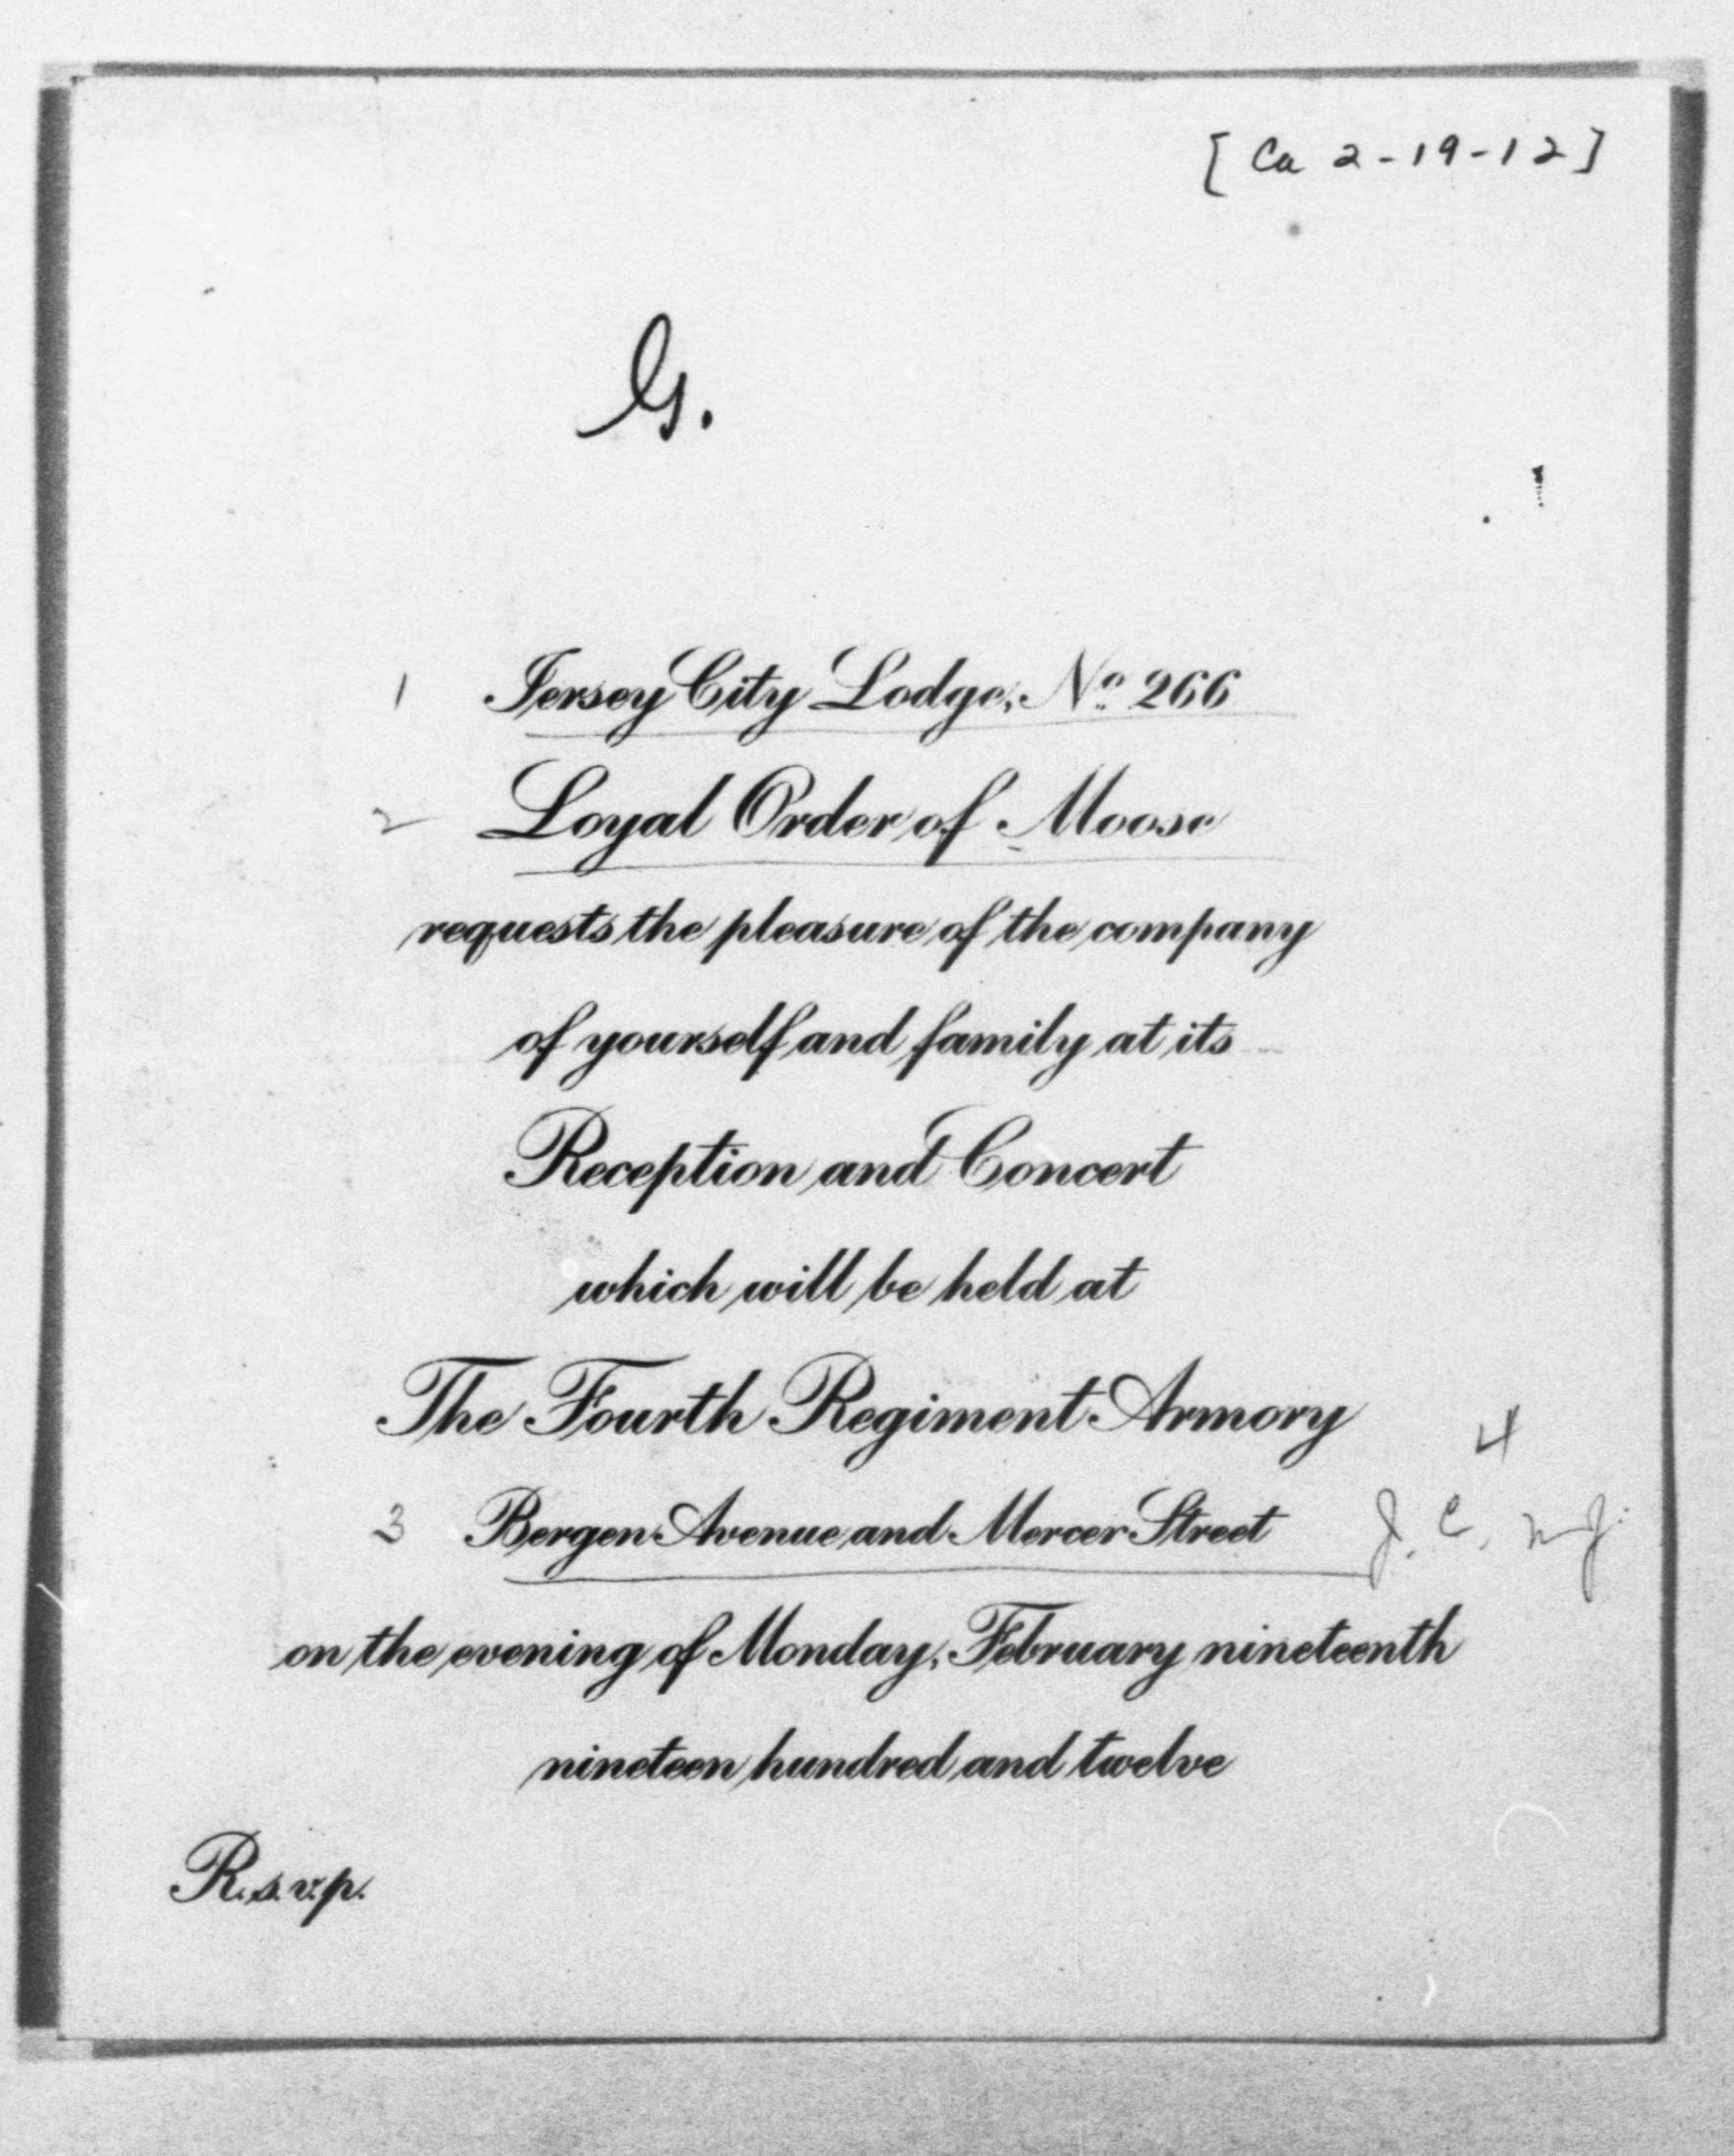 [Ca 2-19-12]
G.
1 Jersey City Lodge, No. 266
2 Loyal Order of Moose
requests the pleasure of the company
of yourself and family at its
Reception and Concert
which will be held at
The Fourth Regiment Armory
4
3 Bergen Avenue and Mercer Street J. C. N J.
on the evening of Monday, February nineteenth
nineteen hundred and twelve
R.s.v.p.